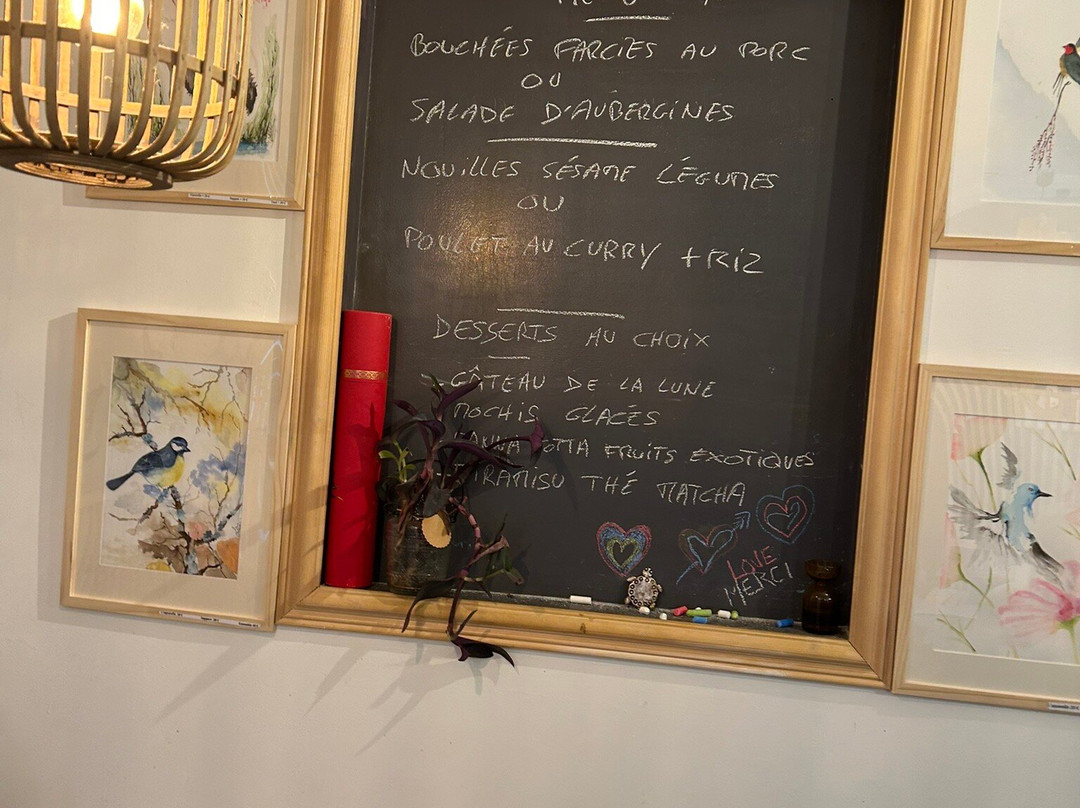 BOUCHÉES FARCIES AU PORC
OU
SALADE D'AUBERGINES
NOUILLES SÉSAME LÉGUMES
OU
POULET AU CURRY + RIZ
DESSERTS AU CHOIX
GÂTEAU DE LA LUNE
MOCHIS GLACÉS
PANNA COTTA FRUITS EXOTIQUES
TIRAMISU THÉ MATCHA
LOVE
MERCI